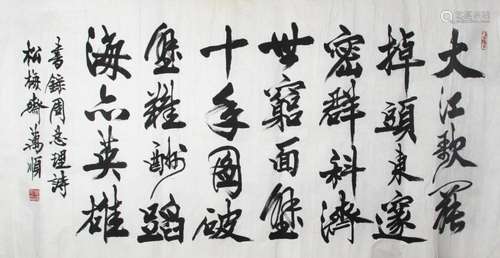 大江歌罷
掉頭東邃
密群科濟
世窮面壁
十年圖破
壁難酬蹈
海亦英雄
書錄周总理詩
松梅齋萬順